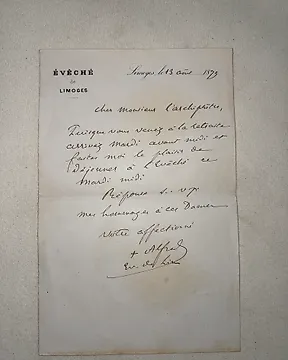 ÉVÊCHÉ
DE
LIMOGES
Limoges le 13 août 1879
Cher Monsieur l'archiprêtre,
Puisque vous venez à la retraite
arrivez Mardi avant midi et
faites moi le plaisir de
déjeuner à l'Évêché ce
Mardi midi
Réponse s. v. p
mes hommages à ces Dames
Votre affectionné
+ Alfred
Ev. de Lim